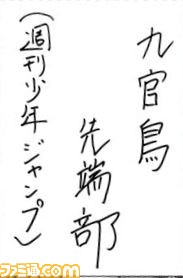 九官鳥
先端部
(週刊少年ジャンプ)
ファミ通.com